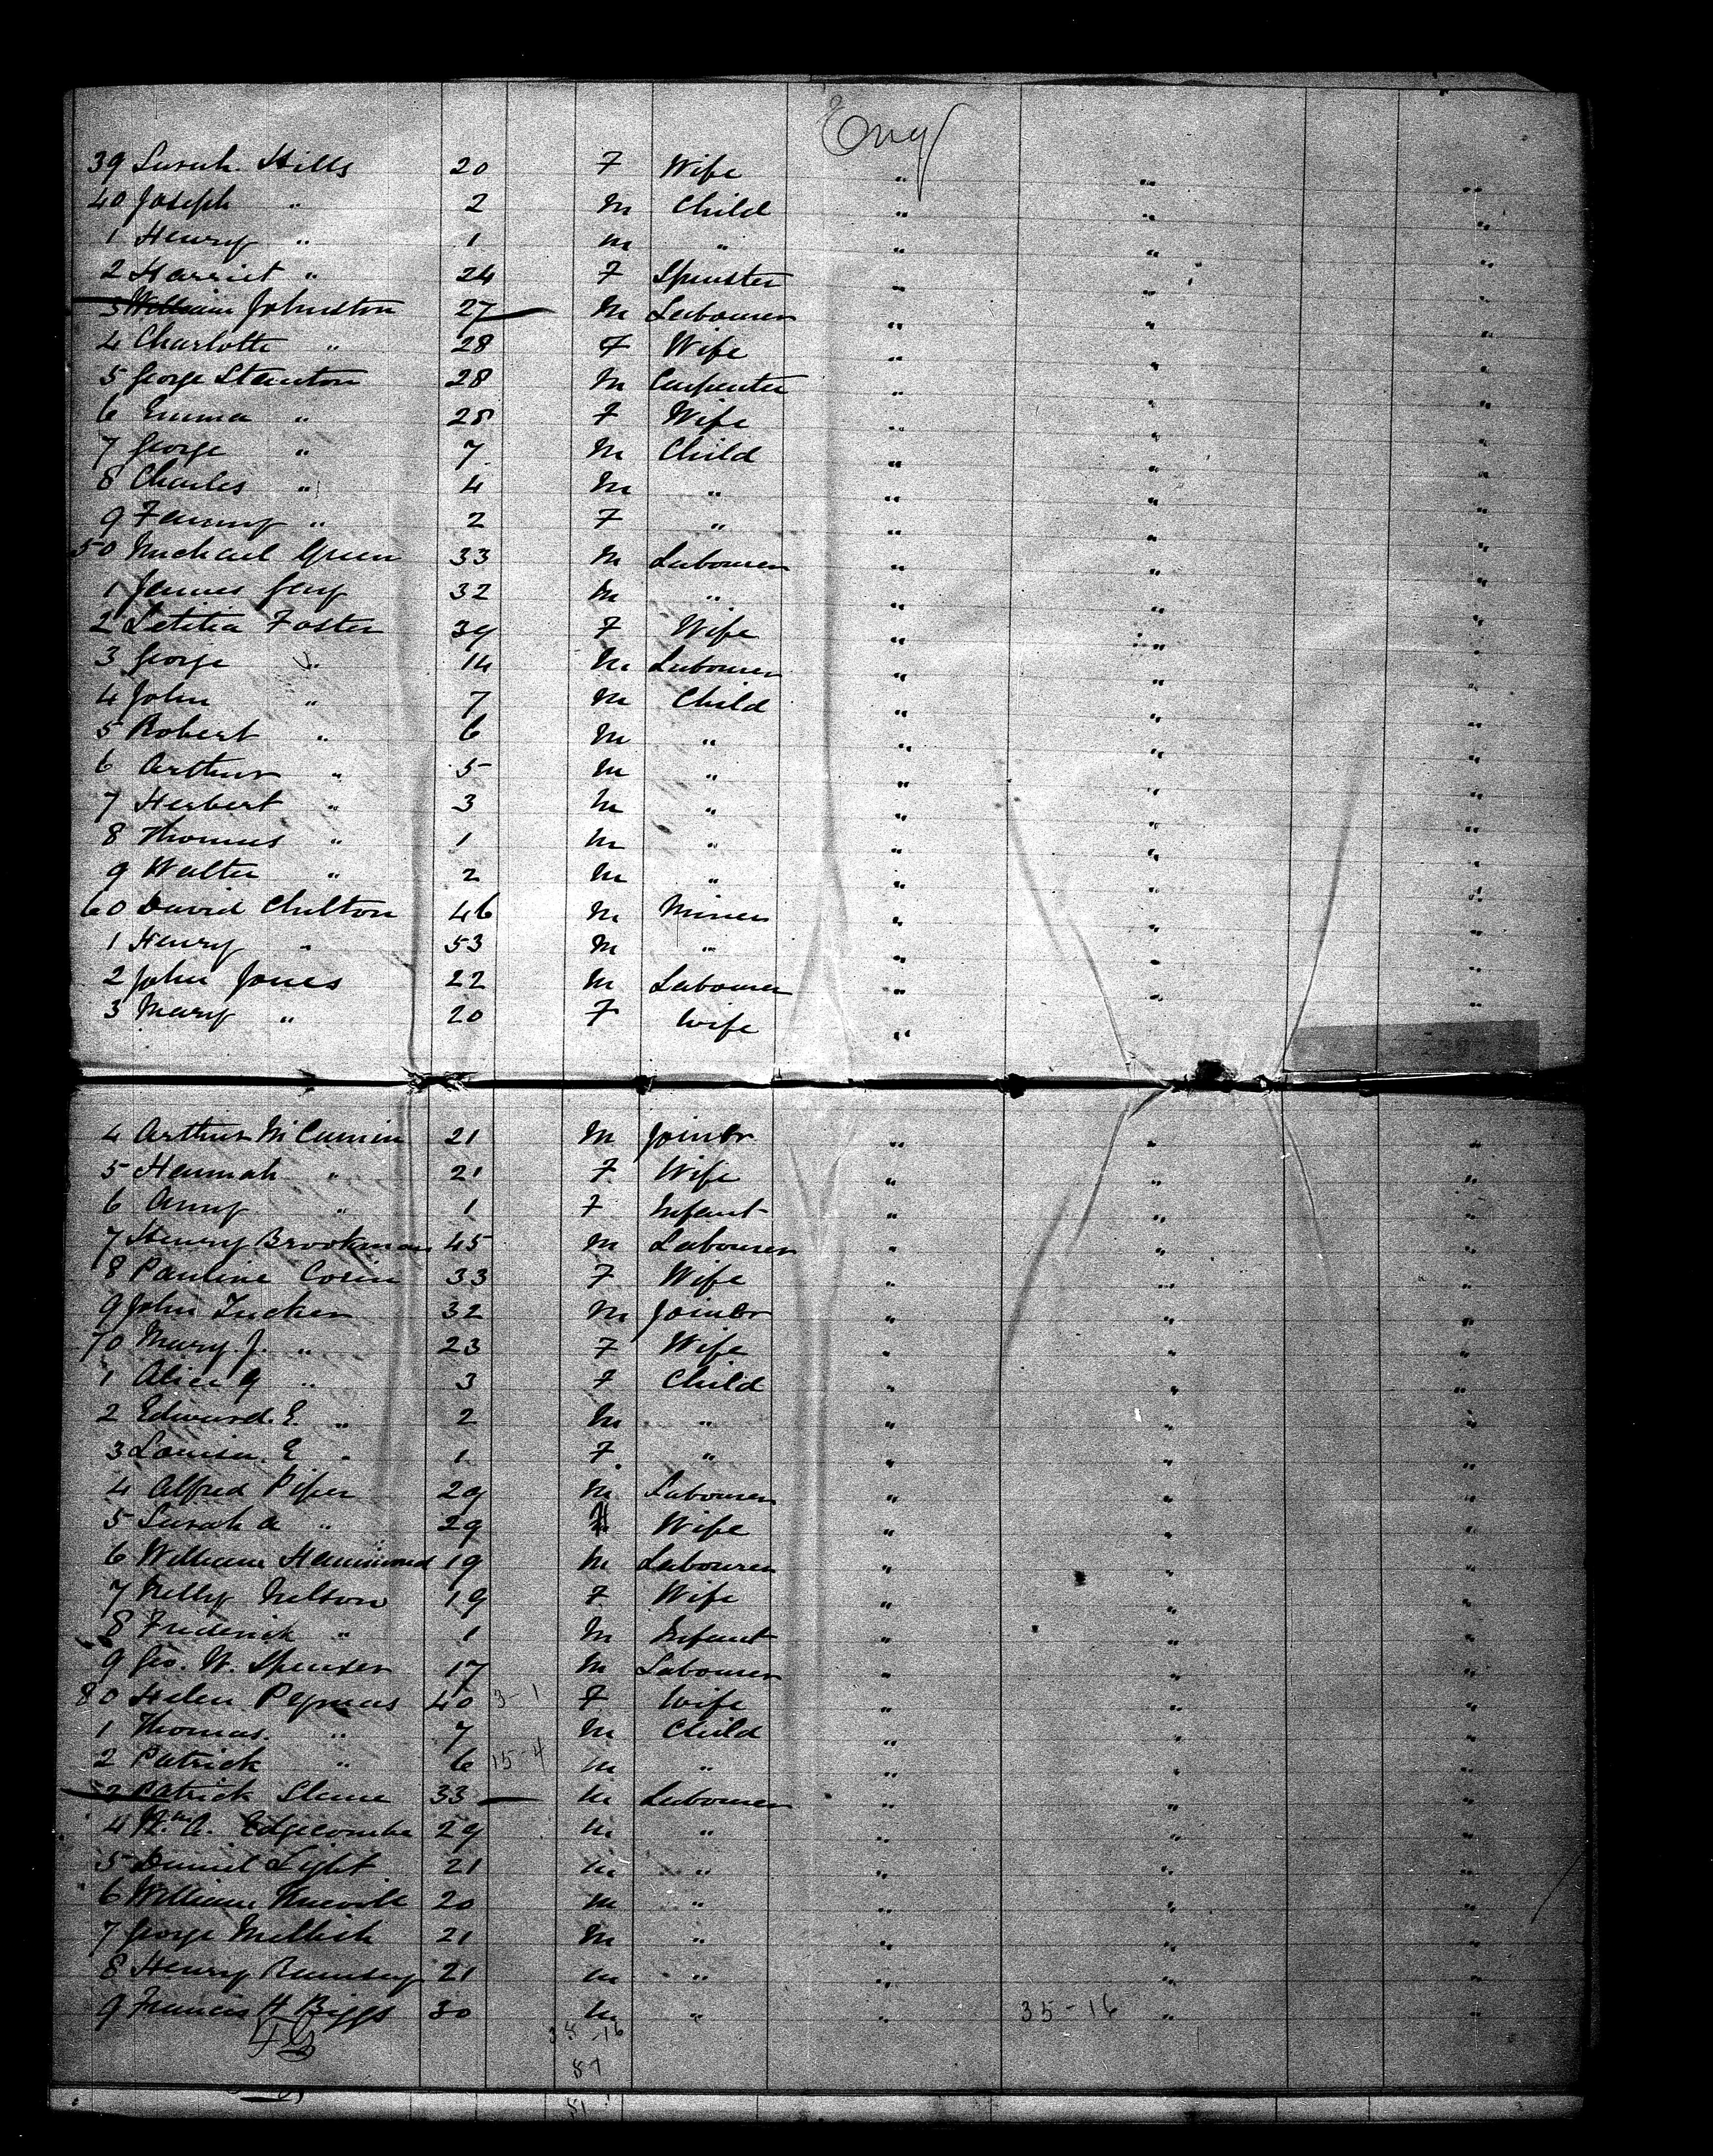 Eng
39 Sarah Hills 20 F Wife " " "
40 Joseph " 2 M Child " " "
1 Henry " 1 M " " " "
2 Harriet " 24 F Spinster " " "
3 William Johnston 27 M Labourer " " "
4 Charlotte " 28 F Wife " " "
5 George Stanton 28 M Carpenter " " "
6 Emma " 28 F Wife " " "
7 George " 7 M Child " " "
8 Charles " 4 M " " " "
9 Fanny " 2 F " " " "
50 Michael Green 33 M Labourer " " "
1 James 32 M " " " "
2 Letitia Foster 39 F Wife " " "
3 George " 14 M Labourer " " "
4 John " 7 M Child " " "
5 Robert " 6 M " " " "
6 Arthur " 5 M " " " "
7 Herbert " 3 M " " " "
8 Thomas " 1 M " " " "
9 Walter " 2 M " " " "
60 David Chilton 46 M Miner " " "
1 Henry " 53 M " " " "
2 John Jones 22 M Labourer " " "
3 Mary " 20 F Wife "
4 Arthur McCumin 21 M Joiner " " "
5 Hannah " 21 F Wife " " "
6 Anny " 1 F Infant " " "
7 Henry Brookman 45 M Labourer " " "
8 Pauline Corin 33 F Wife " " "
9 John Tucker 32 M Joiner " " "
70 Mary J. " 23 F Wife " " "
1 Alice G " 3 F Child " " "
2 Edward. E. " 2 M " " " "
3 Louisa. E " 1 F " " " "
4 Alfred Piper 29 M Labourer " " "
5 Sarah A " 29 F Wife " " "
6 William Hammond 19 M Labourer " " "
7 Nelly Nelson 19 F Wife " " "
8 Frederick " 1 M Infant " " "
9 Geo. W. Spenser 17 M Labourer " " "
80 Helen Pymus 40 3-1 F Wife " " "
1 Thomas. " 7 M Child " " "
2 Patrick " 6 15-4 M " " " "
3 Patrick Slane 33 M Labourer " " "
4 Wm A. Edgecombe 29 M " " " "
5 Daniel Light 21 M " " " "
6 William 20 M " " " "
7 George Mellish 21 M " " " "
8 Henry Ramsey 21 M " " " "
9 Francis H Biggs 30 M " " 35-16 " "
43 35-16
87
51